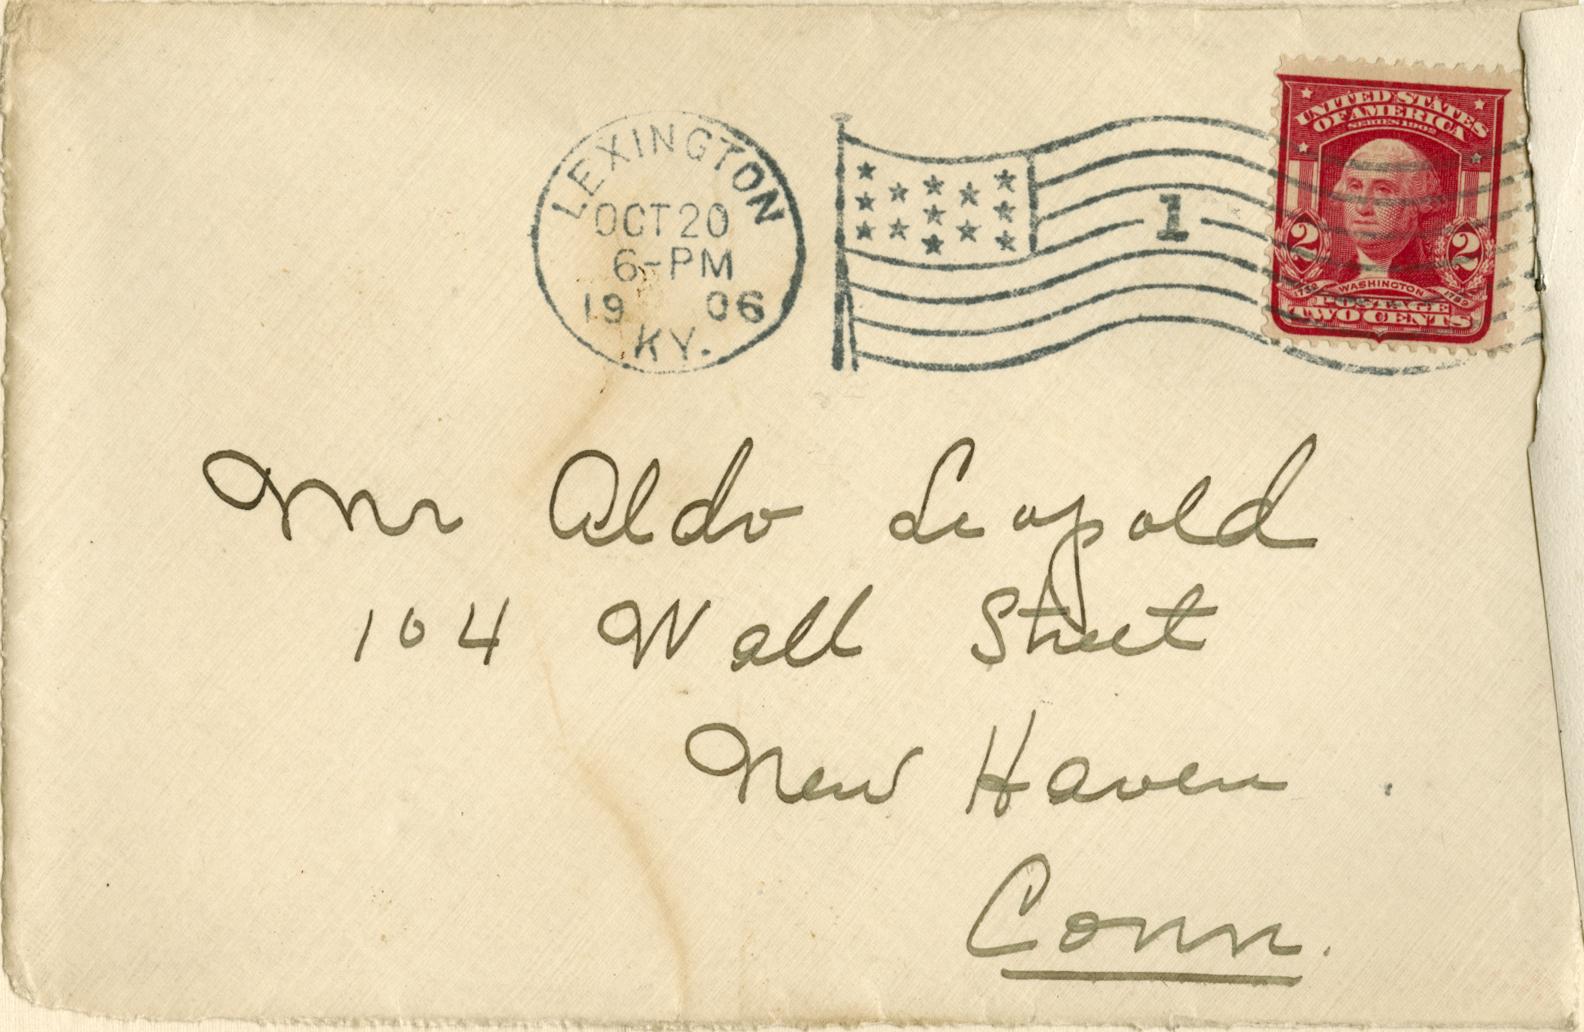 LEXINGTON
OCT 20
6-PM
19 06
KY.
1
UNITED STATES
OF AMERICA
SERIES 1902
2 2
WASHINGTON
POSTAGE
TWO CENTS
Mr Aldo Leopold
104 Wall Street
New Haven
Conn.